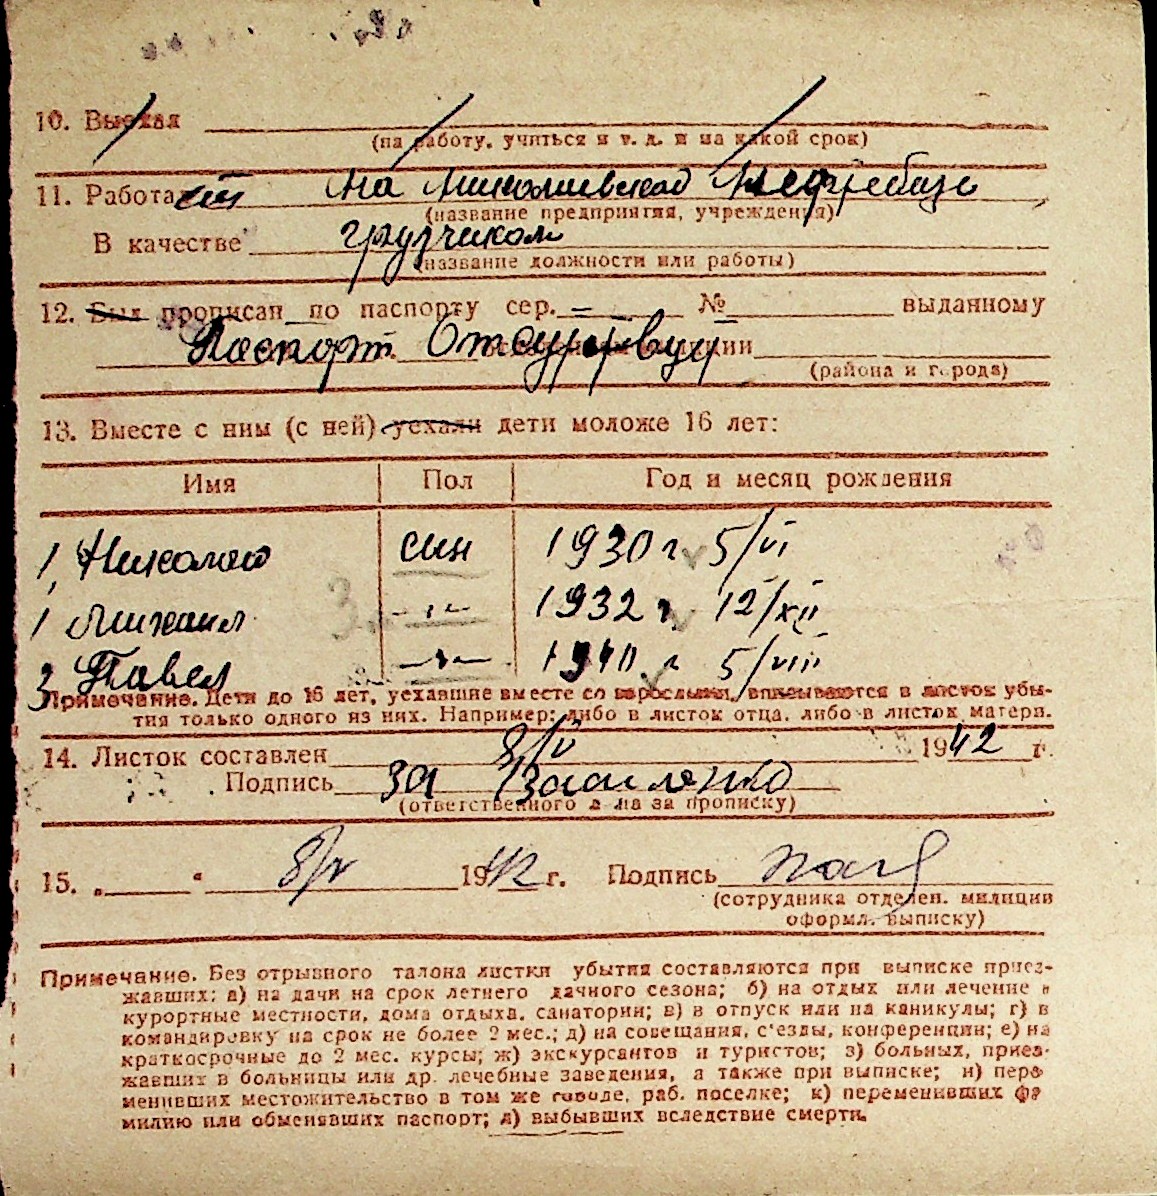 10. Выехал
(на работу, учиться и т. д. и на какой срок)
11. Работает на Николаевской Нефтебазе
(название предприятия, учреждения)
В качестве грузчиком
(название должности или работы)
12. Был прописан по паспорту сер. – № выданному
Паспорт Отсутствует милиции
(района и города)
13. Вместе с ним (с ней) уехали дети моложе 16 лет:
Имя Пол Год и месяц рождения
1, Николай син 1930 г 5/VI
1 Михаил –"– 1932 г. 12/XII
3 Павел –"– 1940 г 5/VIII
Примечание. Дети до 16 лет, уехавшие вместе со взрослыми, вписываются в листок убы-
тия только одного из них. Например: либо в листок отца, либо в листок матери.
14. Листок составлен 8/V 1942 г.
Подпись за Василенко
(ответственного л-ца за прописку)
15. „ “ 8/V 1942 г. Подпись
(сотрудника отделен. милиции
оформл. выписку)
Примечание. Без отрывного талона листки убытия составляются при выписке приез-
жавших: а) на дачи на срок летнего дачного сезона; б) на отдых или лечение в
курортные местности, дома отдыха, санатории; в) в отпуск или на каникулы; г) в
командировку на срок не более 2 мес.; д) на совещания, с'езды, конференции; е) на
краткосрочные до 2 мес. курсы; ж) экскурсантов и туристов; з) больных, приез-
жавших в больницы или др. лечебные заведения, а также при выписке; и) пере
менивших местожительство в том же городе, раб. поселке; к) переменивших фа
милию или обменявших паспорт; л) выбывших вследствие смерти.